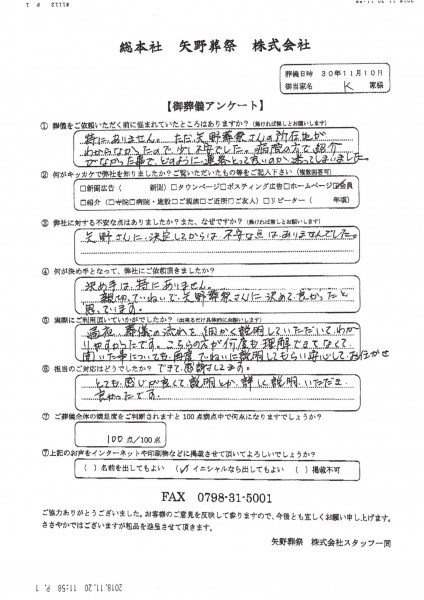 総本社 矢野葬祭 株式会社
葬儀日時 30年11月10日
御当家名 K 家様
【御葬儀アンケート】
① 葬儀をご依頼いただく前に悩まれていたところはありますか?(無ければ無しとお願いします)
特にありません。ただ矢野葬祭さんの所在地が
わからなかったので少し不安でした。病院の方で紹介
がなかった事で、どのように連絡とって良いのか迷ってしまいました。
② 何がキッカケで弊社を知りましたか?ご覧いただいたもの等をご記入下さい(複数回答可)
□新聞広告( 新聞) □タウンページ □ポスティング広告 □ホームページ ☑会員
□紹介( □寺院 □病院・施設 □ご親族 □ご近所 □ご友人) □リピーター( 年頃)
③ 弊社に対する不安な点はありましたか?また、なぜですか?(無ければ無しとお願いします)
矢野さんに決定してからは不安な点はありませんでした。
④ 何が決め手となって、弊社にご依頼頂きましたか?
決め手は特にありません。
親切、ていねいで矢野葬祭さんに決めて良かったと
思っています。
⑤ 実際にご利用頂いていかがでしたか?(出来るだけ具体的にお願いします)
通夜、葬儀の流れを細かく説明していただいてわか
りやすかったです。こちらの方が何度も理解できてなくて、
聞いた事についても再度ていねいに説明してもらい安心しておまかせ
できて感謝してます。
⑥ 担当のご対応はどうでしたか?
とても感じが良くて説明とか、詳しく説明いただき
良かったです。
⑦ ご葬儀全体の満足度をご判断されますと100点満点中で何点になりますでしょうか?
100 点/100点
⑦上記のお声をインターネットや印刷物などに掲載させて頂いてよろしいでしょうか?
( )名前を出してもよい (✓)イニシャルなら出してもよい ( )掲載不可
FAX 0798-31-5001
ご協力ありがとうございました。お客様のご意見を反映して参りますので、今後とも宜しくお願い申し上げます。
ささやかではございますが粗品を進呈させて頂きます。
矢野葬祭 株式会社スタッフ一同
2018.11.20 11:58 P. 1